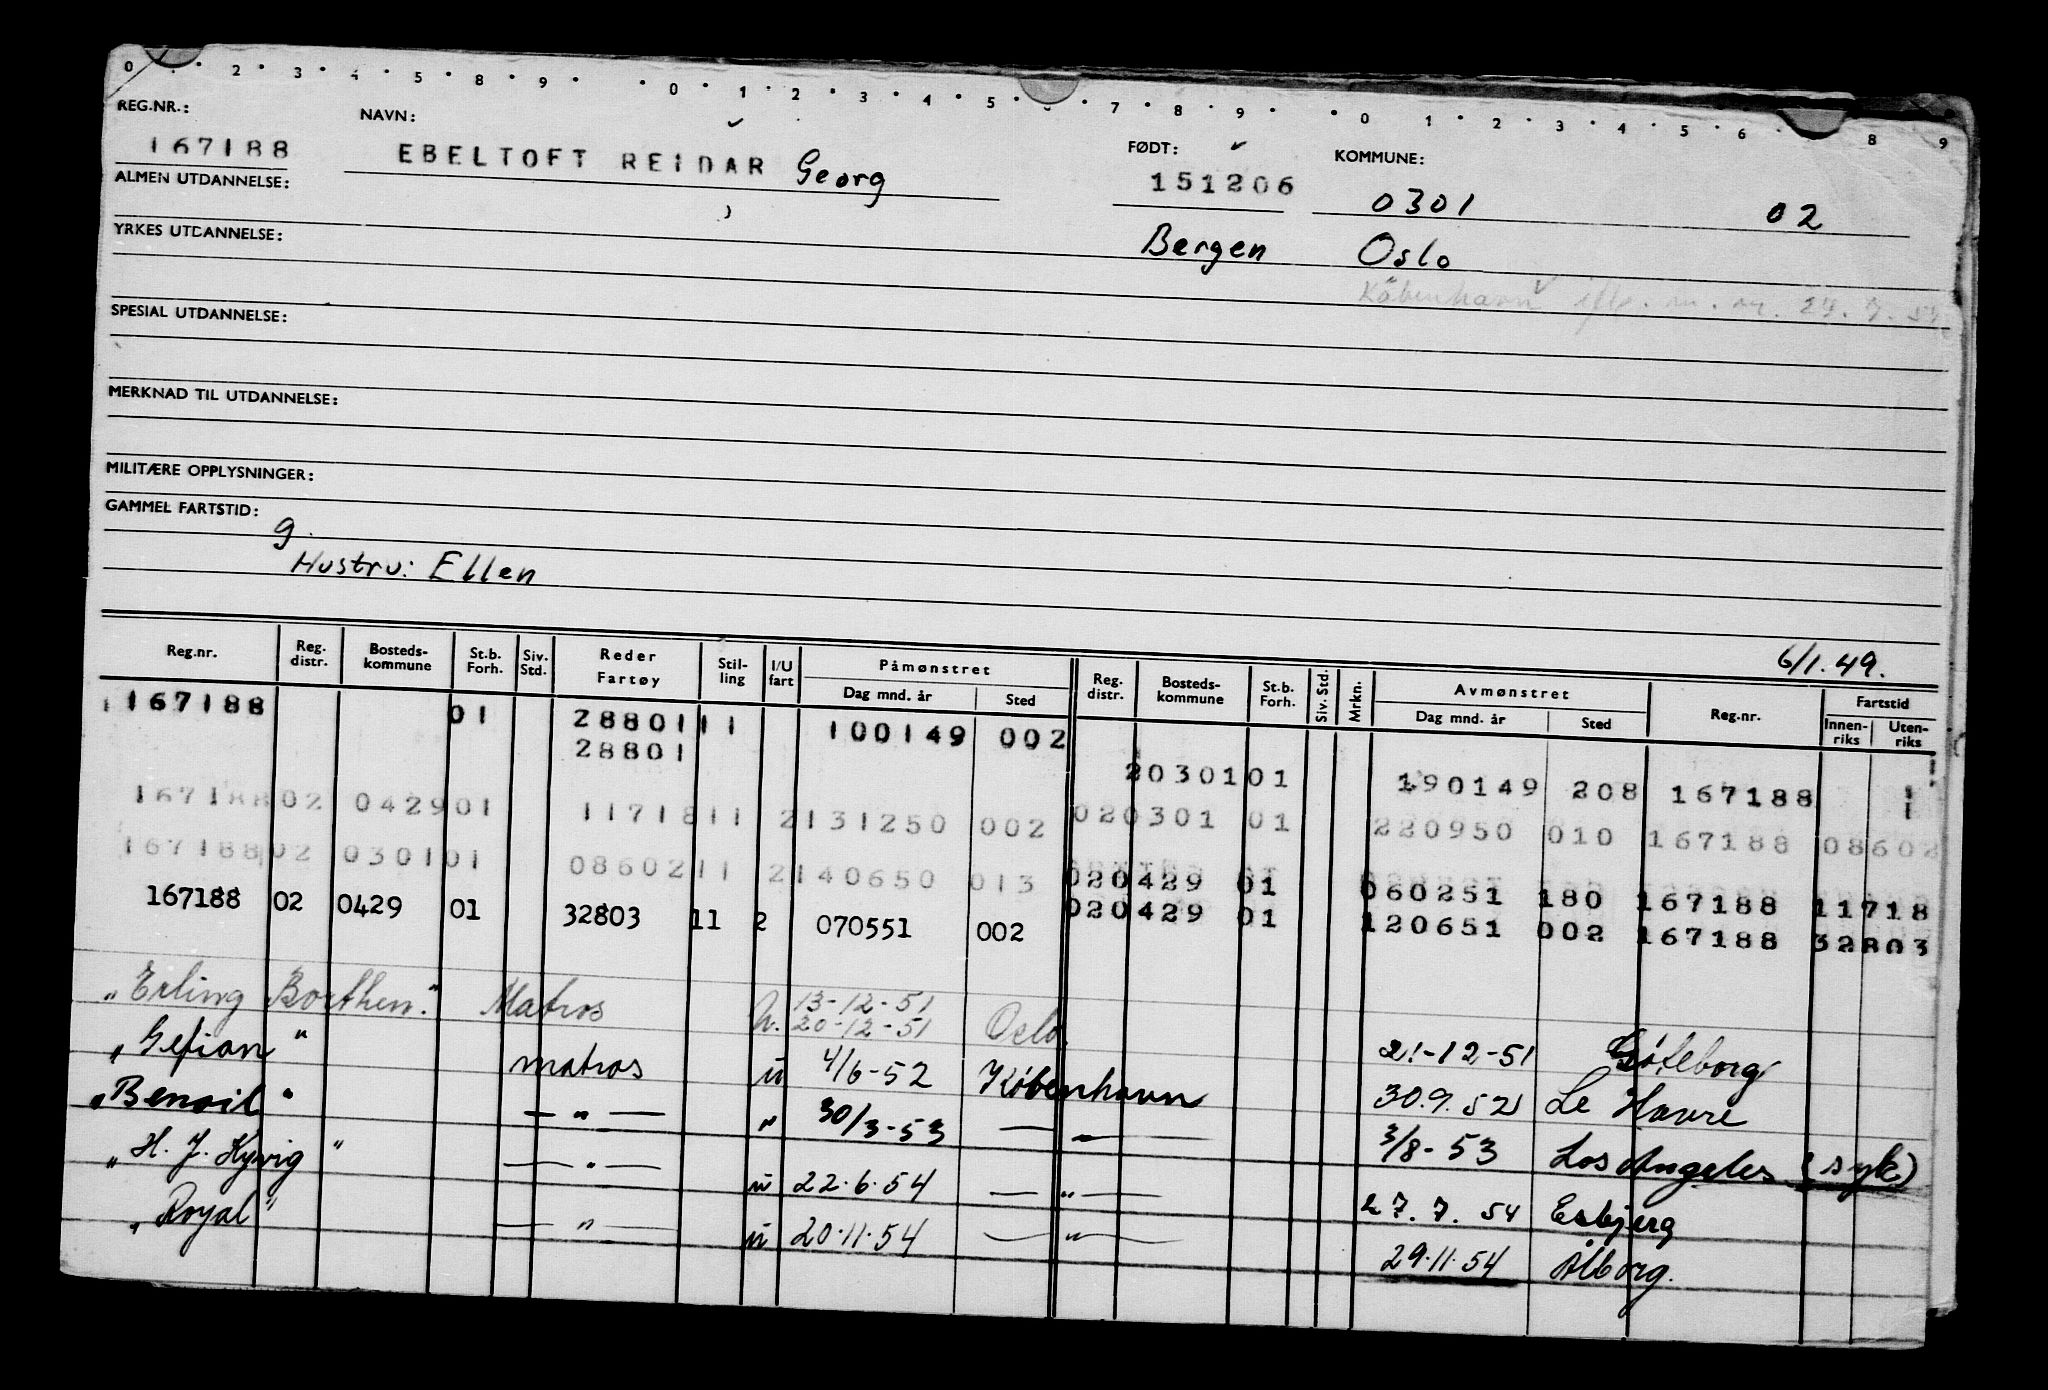 0 . 2 . 3 . 4 . 5 . 8 . 9 . . 0 . 1 . 2 . 3 . 4 . 5 . 7 . 8 . 9 . . 0 . 1 . 2 . 3 . 4 . 5 . 6 . 8 . 9
REG.NR.: NAVN: FØDT: KOMMUNE:
167188 EBELTOFT REIDAR Georg 151206 0301 02
ALMEN UTDANNELSE:
Bergen Oslo
YRKES UTDANNELSE:
København
SPESIAL UTDANNELSE:
MERKNAD TIL UTDANNELSE:
MILITÆRE OPPLYSNINGER:
GAMMEL FARTSTID:
g.
Hustru: Ellen
6/1.49.
Reg.nr. Reg. distr. Bosteds-kommune St.b. Forh. Siv. Std. Reder Fartøy Stil-ling I/U fart Påmønstret Dag mnd. år Sted Reg. distr. Bosteds-kommune St.b. Forh. Siv. Std. Mrkn. Avmønstret Dag mnd. år Sted Reg.nr. Fartstid Innen-riks Uten-riks
167188 01 28801 11 100149 002
28801 20301 01 190149 208 167188 1
167188 02 0429 01 11718 11 2 131250 002 020301 01 220950 010 167188 08602
167188 02 0301 01 08602 11 2 140650 013 020429 01 060251 180 167188 11718
167188 02 0429 01 32803 11 2 070551 002 020429 01 120651 002 167188 32803
"Erling Borthen." Matros u. 13-12-51 Oslo
20-12-51 21-12-51 Göteborg
"Gefion" matros u 4/6-52 København 30.9.52 Le Havre
"Benoil" — " — " 30/3-53 — " — 3/8-53 Los Angeles (syk)
"H. J. Kyvig" — " — u 22.6.54 — " — 27.7.54 Esbjerg
"Royal" — " — u 20.11.54 — " — 29.11.54 Ålborg.